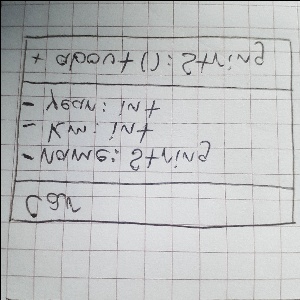 Car
- name: String
- Km: int
- Year: int
+ about(): String